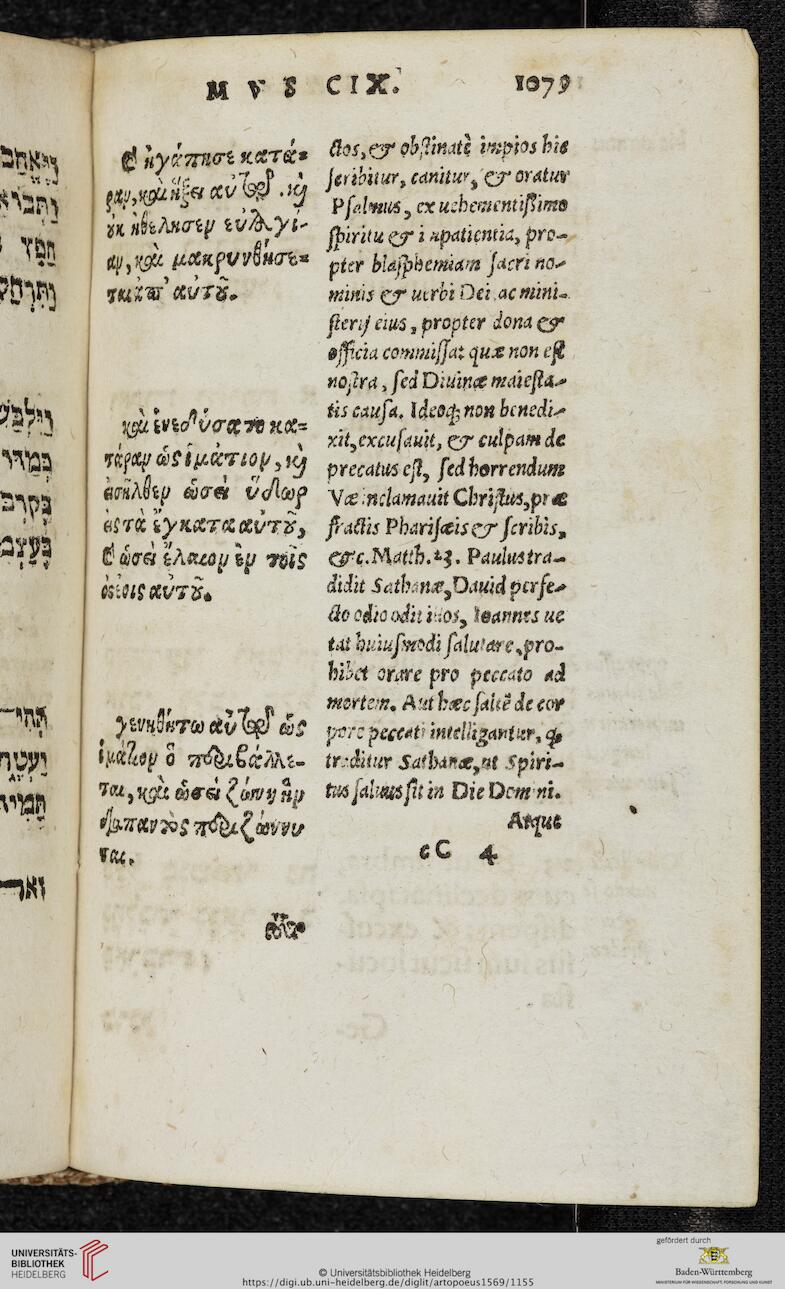 MVS CIX. 1079
Καὶ ἠγάπησε κατά-
ραν, καὶ ἥξει αὐτῷ. καὶ
οὐκ ἠθέλησεν εὐλογί-
αν, καὶ μακρυνθήσε-
ται ἀπ' αὐτοῦ.
καὶ ἐνεδύσατο κα-
τάραν ὡς ἱμάτιον, καὶ
εἰσῆλθεν ὡσεὶ ὕδωρ
εἰς τὰ ἔγκατα αὐτοῦ,
καὶ ὡσεὶ ἔλαιον ἐν τοῖς
ὀστέοις αὐτοῦ.
γενηθήτω αὐτῷ ὡς
ἱμάτιον ὃ περιβάλλε-
ται, καὶ ὡσεὶ ζώνη ἣν
διαπαντὸς περιζώννυ
ται.
ctos, & obstinatè impios hic
scribitur, canitur, & oratur
Psalmus, ex uehementissimo
spiritu & inpatientia, pro-
pter blasphemiam sacri no-
minis & uerbi Dei ac mini-
sterij eius, propter dona &
officia commissa: quæ non est
nostra, sed Diuinæ maiesta-
tis causa. Ideoq; non benedi-
xit, excusauit, & culpam de
precatus est, sed horrendum
Væ inclamauit Christus, præ
fractis Pharisæis & scribis,
&c. Matth. 23. Paulus tra-
didit Sathanæ, Dauid perfe-
cto odio odit illos, Ioannes ue
tat huiusmodi salutare, pro-
hibet orare pro peccato ad
mortem. Aut hæc saltē de cor
pore peccati intelligantur, q
traditur Sathanæ, ut Spiri-
tus saluus sit in Die Domini.
Atque
cC 4
וַיֶּאֱהַב
וַתְּבוֹא
חָפֵץ
וַתִּרְחַק
וַיִּלְבַּשׁ
כְּמַדּוֹ
בְּקִרְבּ
בְּעַצְמ
תְּהִי־
יַעְטֶה
תָּמִיד
UNIVERSITÄTS-
BIBLIOTHEK
HEIDELBERG
© Universitätsbibliothek Heidelberg
https://digi.ub.uni-heidelberg.de/diglit/artopoeus1569/1155
gefördert durch
Baden-Württemberg
MINISTERIUM FÜR WISSENSCHAFT, FORSCHUNG UND KUNST